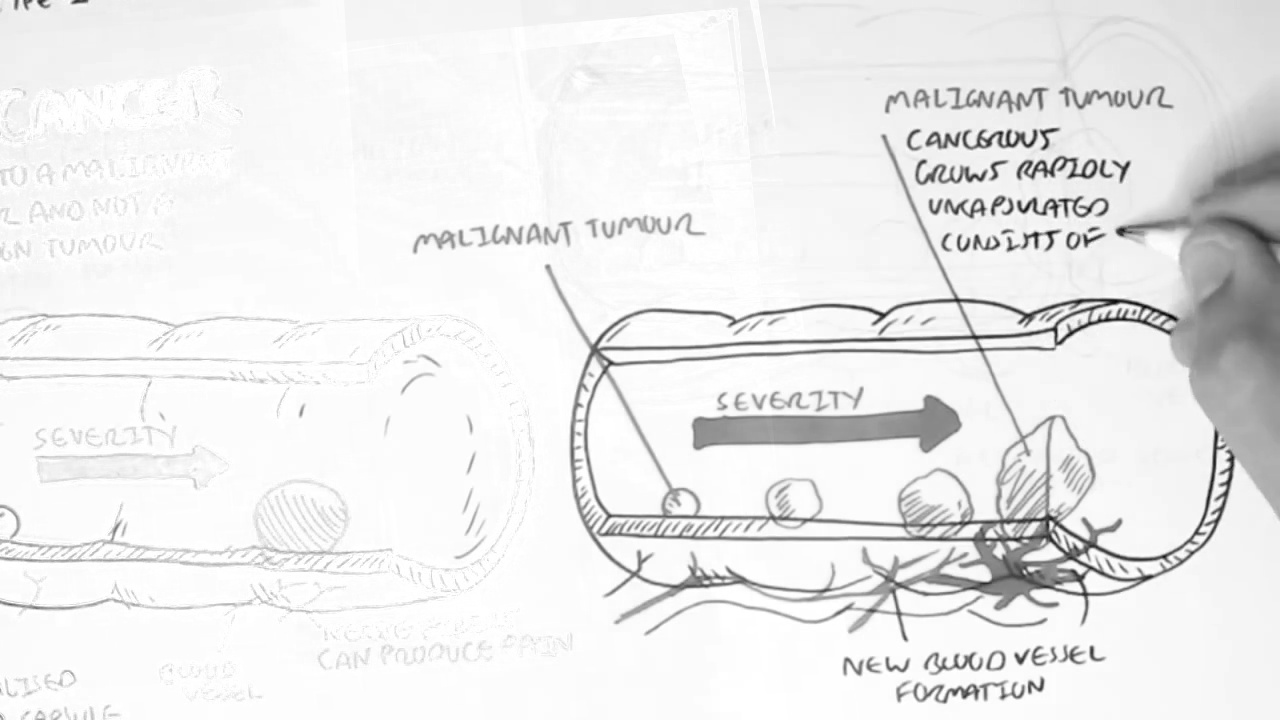 CANCER
TO A MALIGNANT
AND NOT A
TUMOUR
SEVERITY
BLOOD
VESSEL
CAN PRODUCE PAIN
CAPSULE
MALIGNANT TUMOUR
MALIGNANT TUMOUR
CANCEROUS
GROWS RAPIDLY
UNCAPSULATED
CONSISTS OF
SEVERITY
NEW BLOOD VESSEL
FORMATION